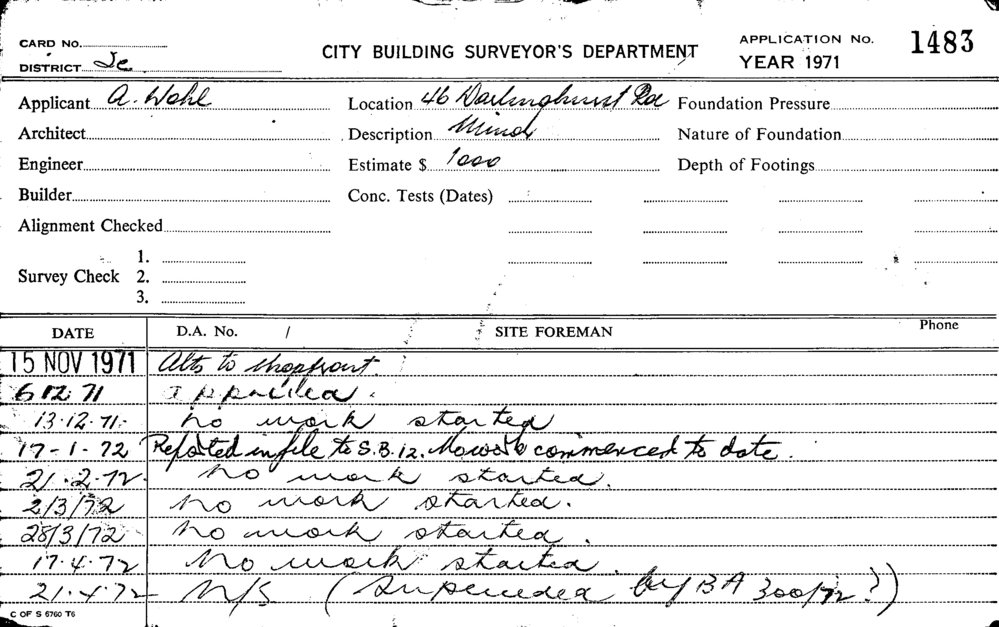 CARD No.
DISTRICT Je
CITY BUILDING SURVEYOR'S DEPARTMENT
APPLICATION No. 1483
YEAR 1971
Applicant A. Wohl
Location 46 Darlinghurst Rd
Foundation Pressure
Architect
Description Minor
Nature of Foundation
Engineer
Estimate $ 1000
Depth of Footings
Builder
Conc. Tests (Dates)
Alignment Checked
Survey Check 1.
2.
3.
DATE D.A. No. / SITE FOREMAN Phone
15 NOV 1971 Alts to shopfront.
6 12 71 approved.
13.12.71. no work started
17-1.72 Reported in file to S.B.12. No work commenced to date.
21.2.72. no work started.
2/3/72 no work started.
28/3/72 no work started.
17.4.72 No work started.
21.4.72 N/S (Superceded by BA 300/72?)
C OF S 6760 T6